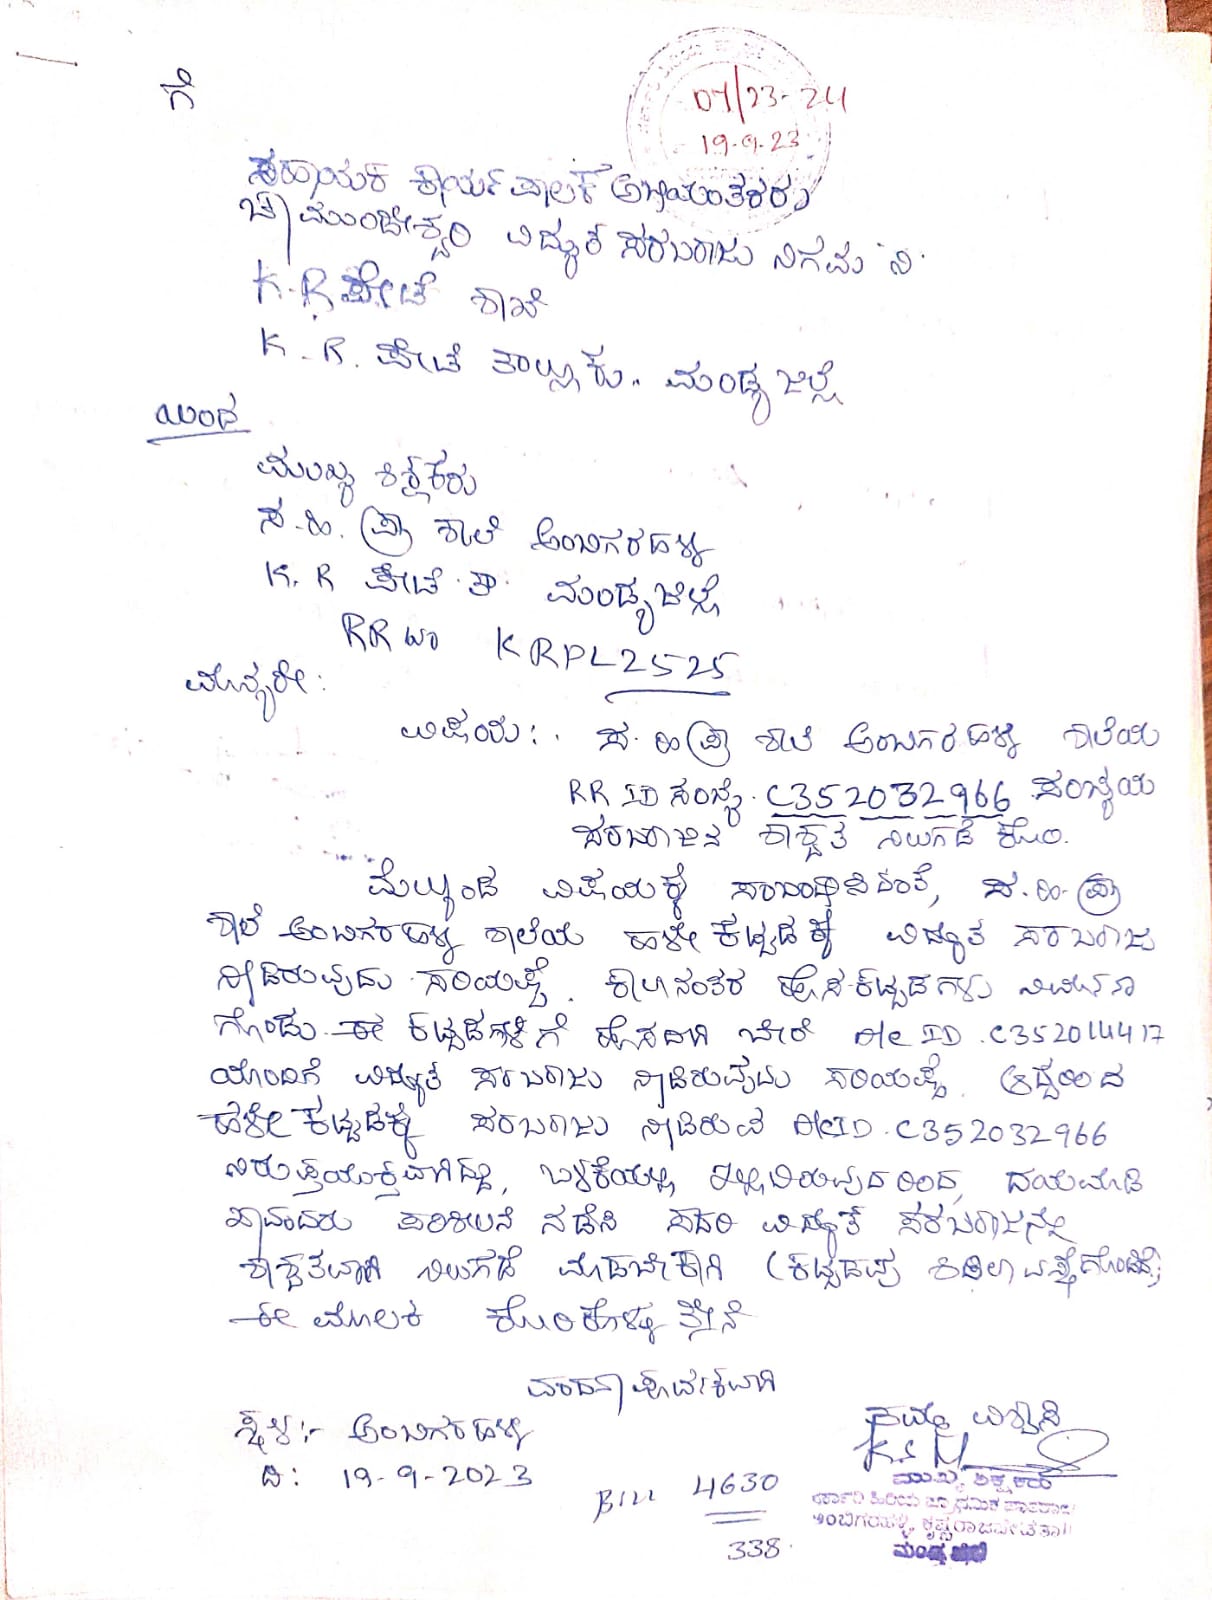 07/23-24
19.9.23
ಗೆ
ಸಹಾಯಕ ಕಾರ್ಯಪಾಲಕ ಅಭಿಯಂತಕರು
ಚಾಮುಂಡೇಶ್ವರಿ ವಿದ್ಯುತ್ ಸರಬರಾಜು ನಿಗಮ ನಿ.
K.R ಪೇಟೆ ಶಾಖೆ
K.R. ಪೇಟೆ ತಾಲ್ಲೂಕು. ಮಂಡ್ಯ ಜಿಲ್ಲೆ
ಯಿಂದ
ಮುಖ್ಯ ಶಿಕ್ಷಕರು
ಸ.ಹಿ.ಪ್ರಾ ಶಾಲೆ ಅಂಬಿಗರಹಳ್ಳಿ
K.R ಪೇಟೆ.ತಾ. ಮಂಡ್ಯ ಜಿಲ್ಲೆ
RR ನಂ KRPL2525
ಮಾನ್ಯರೇ:
ವಿಷಯ: ಸ.ಹಿ.ಪ್ರಾ ಶಾಲೆ ಅಂಬಿಗರಹಳ್ಳಿ ಶಾಲೆಯ
RR ID ಸಂಖ್ಯೆ. C352032966 ಸಂಖ್ಯೆಯ
ಸರಬರಾಜಿನ ಶಾಶ್ವತ ನಿಲುಗಡೆ ಕೋರಿ.
ಮೇಲ್ಕಂಡ ವಿಷಯಕ್ಕೆ ಸಂಬಂಧಿಸಿದಂತೆ, ಸ.ಹಿ.ಪ್ರಾ
ಶಾಲೆ ಅಂಬಿಗರಹಳ್ಳಿ ಶಾಲೆಯ ಹಳೇ ಕಟ್ಟಡಕ್ಕೆ ವಿದ್ಯುತ್ ಸರಬರಾಜು
ನೀಡಿರುವುದು ಸರಿಯಷ್ಟೆ. ಕಾಲಾನಂತರ ಹೊಸ ಕಟ್ಟಡಗಳು ನಿರ್ಮಾಣ
ಗೊಂಡು ಈ ಕಟ್ಟಡಗಳಿಗೆ ಹೊಸದಾಗಿ ಬೇರೆ A/c ID. C352014417
ಯೊಂದಿಗೆ ವಿದ್ಯುತ್ ಸರಬರಾಜು ನೀಡಿರುವುದು ಸರಿಯಷ್ಟೆ. ಆದ್ದರಿಂದ
ಹಳೇ ಕಟ್ಟಡಕ್ಕೆ ಸರಬರಾಜು ನೀಡಿರುವ A/c ID. C352032966
ನಿರುಪಯುಕ್ತವಾಗಿದ್ದು, ಬಳಕೆಯಲ್ಲಿ ಇಲ್ಲದಿರುವುದರಿಂದ, ದಯಮಾಡಿ
ಖಾವಂದರು ಪರಿಶೀಲನೆ ನಡೆಸಿ ಸದರಿ ವಿದ್ಯುತ್ ಸರಬರಾಜನ್ನು
ಶಾಶ್ವತವಾಗಿ ನಿಲುಗಡೆ ಮಾಡಬೇಕಾಗಿ (ಕಟ್ಟಡವು ಶಿಥಿಲಾವಸ್ಥೆಗೊಂಡಿದೆ)
ಈ ಮೂಲಕ ಕೋರಿಕೊಳ್ಳುತ್ತೇನೆ
ವಂದನಾಪೂರ್ವಕವಾಗಿ
ಸ್ಥಳ:- ಅಂಬಿಗರಹಳ್ಳಿ
ದಿ: 19-9-2023
ತಮ್ಮ ವಿಶ್ವಾಸಿ
ಮುಖ್ಯ ಶಿಕ್ಷಕರು
ಸರ್ಕಾರಿ ಹಿರಿಯ ಪ್ರಾಥಮಿಕ ಪಾಠಶಾಲೆ
ಅಂಬಿಗರಹಳ್ಳಿ, ಕೃಷ್ಣರಾಜಪೇಟೆ ತಾ||
ಮಂಡ್ಯ ಜಿಲ್ಲೆ
Bill 4630
338